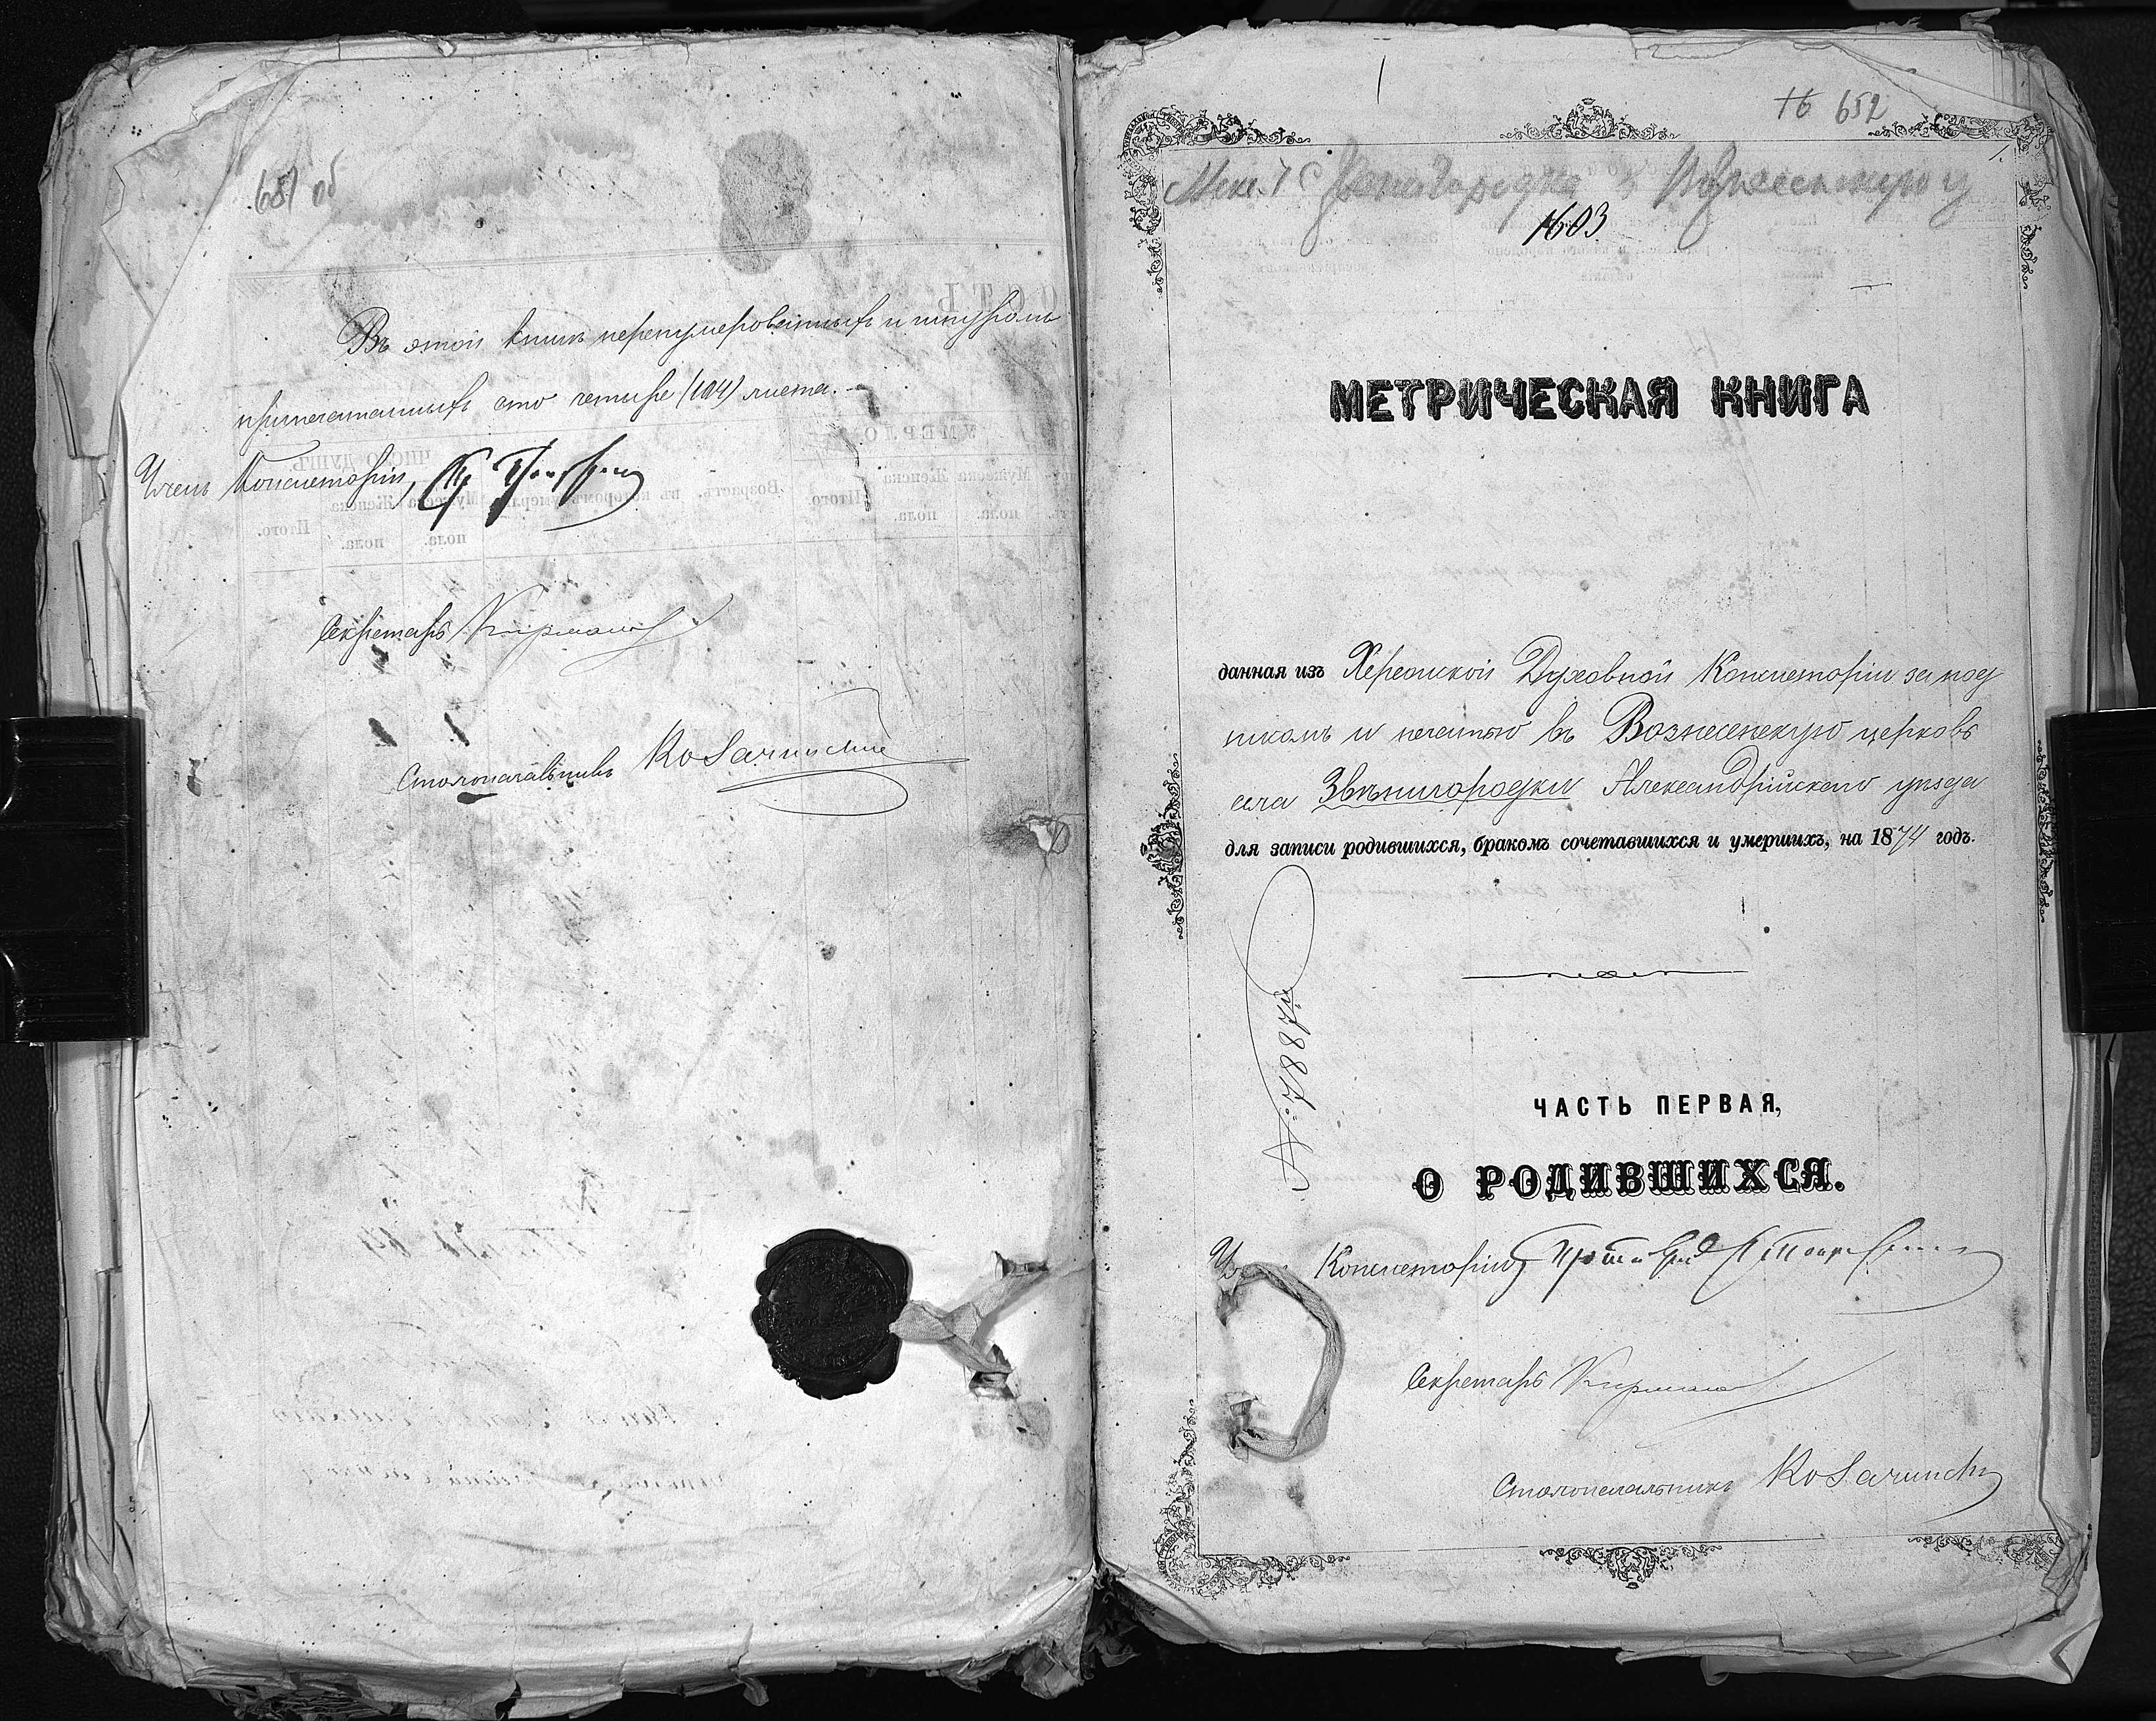 681 об
Въ этой книге перенумерованныхъ и шнуромъ
припечатанныхъ сто четыре (104) листа.
Членъ Консисторіи,
Секретарь
Столоначальникъ
16 652
1.
Звенигородка
1603
МЕТРИЧЕСКАЯ КНИГА
данная изъ Херсонской Духовной Консисторіи за под
писомъ и печатью въ Вознесенскую церковь
села Звѣнигородки Александрійскаго уѣзда
для записи родившихся, бракомъ сочетавшихся и умершихъ, на 1874 годъ.
№ 7887
ЧАСТЬ ПЕРВАЯ,
О РОДИВШИХСЯ.
Консисторіи, Протоіерей
Секретарь
Столоначальникъ